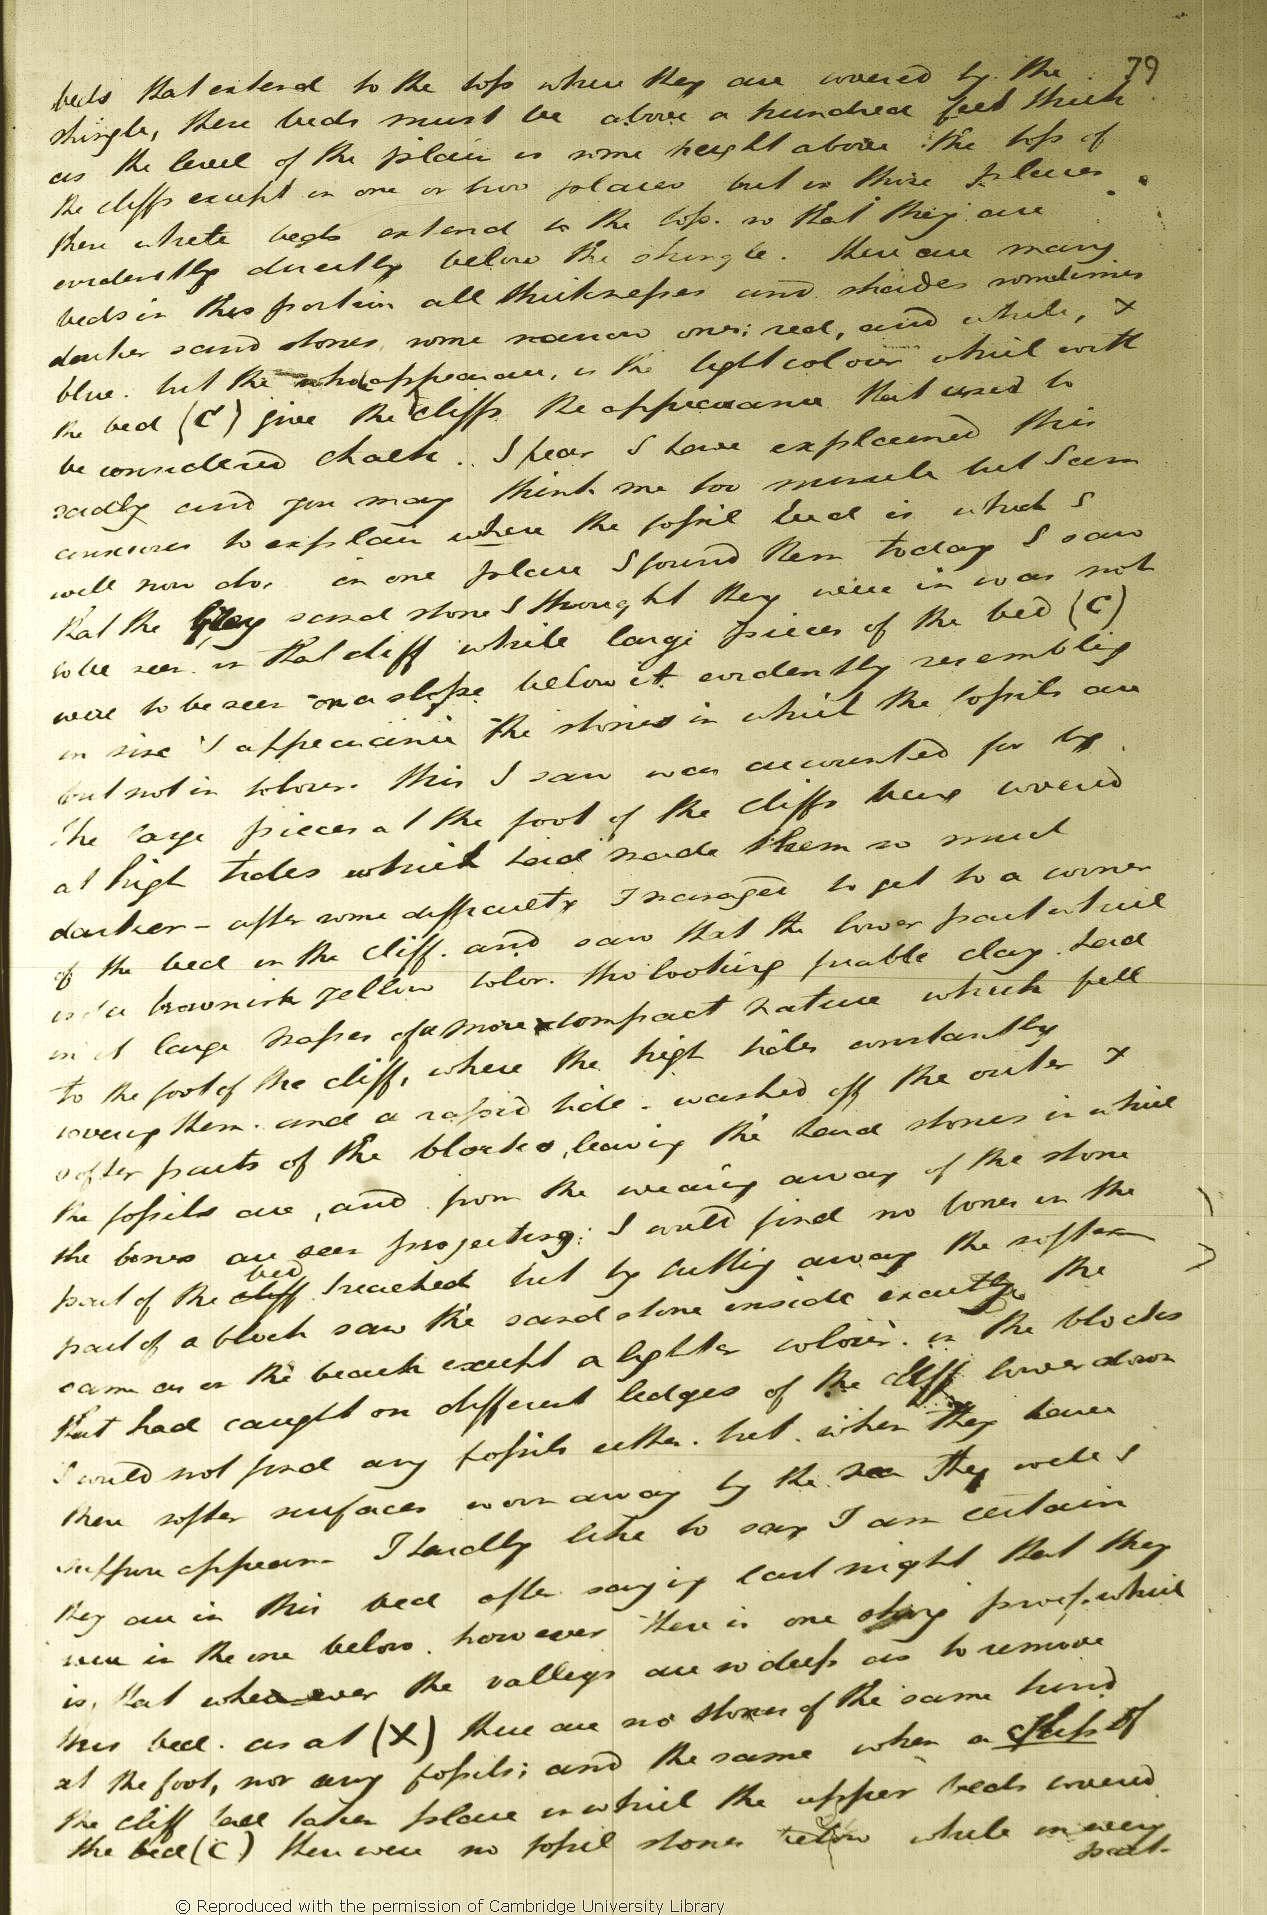 79
beds that extend to the top where they are covered by the
shingle, these beds must be above a hundred feet thick
as the level of the plain is some height above the tops of
the cliffs except in one or two places but in those places
these white beds extend to the top. so that they are
evidently directly below the shingle. there are many
beds in this portion all thicknesses and shades sometimes
darker sand stones, some narrow ones; red, and white, &
blue. but the whole appearance, is the light colour which with
the bed (C) give the cliffs the appearance that used to
be considered chalk. I fear I have explained this
sadly and you may think me too minute but I am
anxious to explain where the fossil bed is which I
will now do. in one place I found them today I saw
that the Grey sand stone I thought they were in was not
to be seen in that cliff while large pieces of the bed (C)
were to be seen on a slope below it evidently resembling
in size & appearance the stones in which the fossils are
but not in colour. this I saw was accounted for by
the large pieces at the foot of the cliffs being covered
at high tides which had made them so much
darker – after some difficulty I managed to get to a corner
of the bed in the cliff. and saw that the lower part which
is a brownish yellow color. tho looking friable clay. had
in it large masses of a more compact nature which fell
to the foot of the cliff, where the high tides constantly
covering them. and a rapid tide. washed off the outer &
softer parts of the blocks, leaving the hard stones in which
the fossils are, and from the wearing away of the stone
the bones are seen projecting; I could find no bones in the
part of the cliff bed I reached but by cutting away the softer
part of a block saw the sand stone inside exactly the
same as on the beach except a lighter colour. in the blocks
that had caught on different ledges of the cliff lower down
I could not find any fossils either. but when they have
their softer surfaces worn away by the sea they would I
suppose appear. I hardly like to say I am certain
they are in this bed after saying last night that they
were in the one below. however there is one strong proof. which
is, that wherever the valleys are so deep as to remove
this bed. as at (X) there are no stones of the same kind
at the foot, nor any fossils; and the same when a slip of
the cliff had taken place in which the upper beds covered
the bed (C) there were no fossil stones below while in every
part.
© Reproduced with the permission of Cambridge University Library